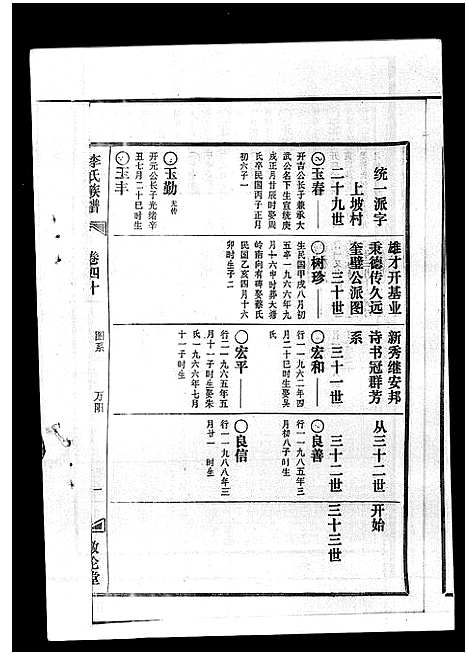 统一派字 雄才开基业 新秀继安邦 从三十二世开始
秉德传久远 诗书冠群芳
上坡村 奎璧公派图系
二十九世 三十世 三十一世 三十二世 三十三世
玉春
开吉公长子兼承大
武公名下生宣统庚
戌正月廿辰时娶周
氏卒民国丙子正月
初六子一
树珍
生民国甲戌八月初
五卒一九六六年九
月十六申时葬大塘
岭南向有碑娶蔡氏
民国乙亥四月十六
卯时生子二
宏和
行一一九六二年四
月二十巳时生娶吴
氏
良善
行一一九八五年三
月初八子时生
宏平
行二一九六五年五
月十一子时生娶朱
氏一九六六年七月
十一子时生
良信
行一一九八八年三
月廿一 时生
玉勤 无传
开元公长子光绪辛
丑七月二十巳时生
玉丰
李氏族谱 卷四十 图系 万阳 一 敦伦堂